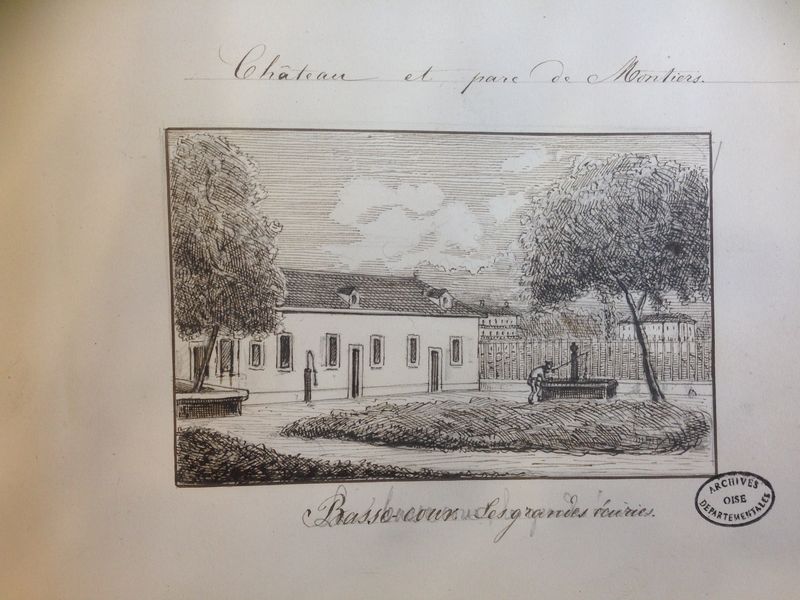 Château et parc de Montiers.
Basse-cour. Les grandes écuries.
ARCHIVES
OISE
DÉPARTEMENTALES